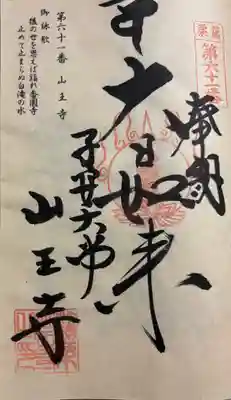 第六十一番
奉納
大日如来
子安大師
山王寺
第六十一番 山王寺
御詠歌
後の世を思えば詣れ香園寺
止めて止まらぬ白滝の水